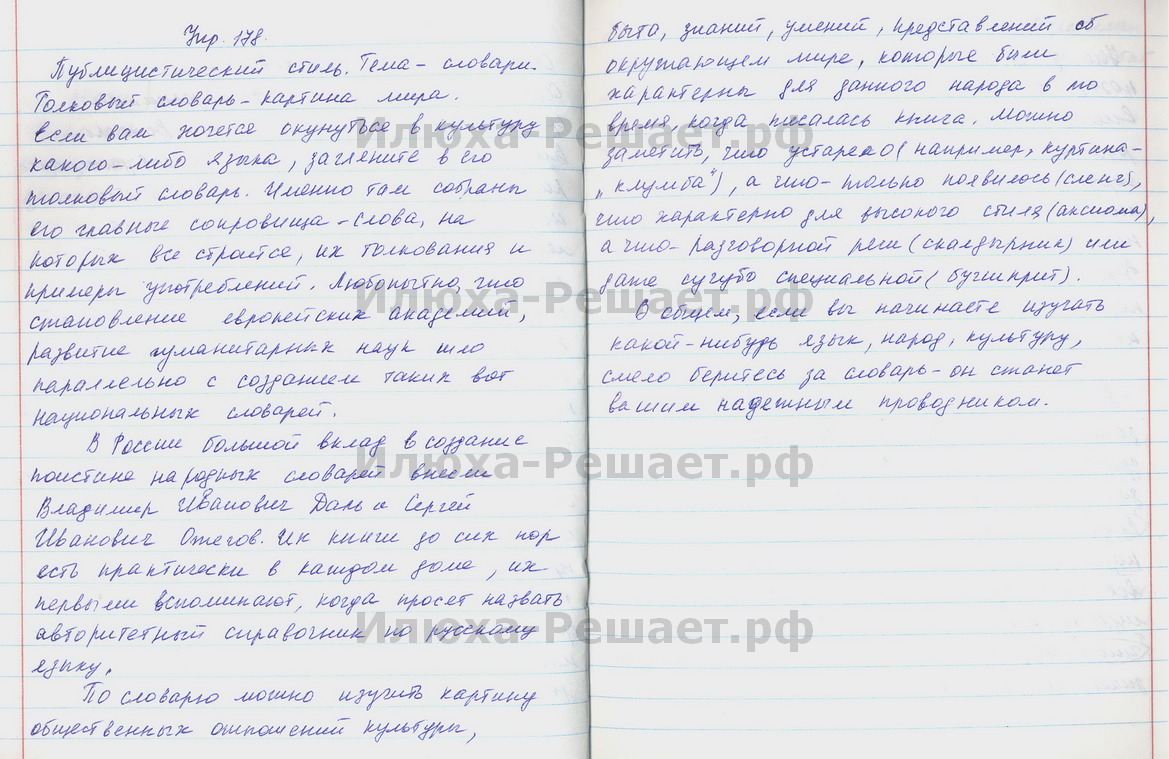 Упр. 178.
Публицистический стиль. Тема - словари.
Толковый словарь - картина мира.
Если вам хочется окунуться в культуру
какого-либо языка, загляните в его
толковый словарь. Именно там собраны
его главные сокровища - слова, на
которых все строится, их толкования и
примеры употреблений. Любопытно, что
становление европейских академий,
развитие гуманитарных наук шло
параллельно с созданием таких вот
национальных словарей.
В России большой вклад в создание
поистине народных словарей внесли
Владимир Иванович Даль и Сергей
Иванович Ожегов. Их книги до сих пор
есть практически в каждом доме, их
первыми вспоминают, когда просят назвать
авторитетный справочник по русскому
языку.
По словарю можно изучить картину
общественных отношений культуры,
быта, знаний, умений, представлений об
окружающем мире, которые были
характерны для данного народа в то
время, когда писалась книга. Можно
заметить, что устарело (например, куртина-
„клумба"), а что - только появилось (сленг),
что характерно для высокого стиля (аксиома),
а что - разговорной речи (скалдырник) или
даже сугубо специальной (бушприт).
В общем, если вы начинаете изучать
какой-нибудь язык, народ, культуру,
смело беритесь за словарь - он станет
вашим надежным проводником.
Илюха-Решает.рф
Илюха-Решает.рф
Илюха-Решает.рф
Илюха-Решает.рф